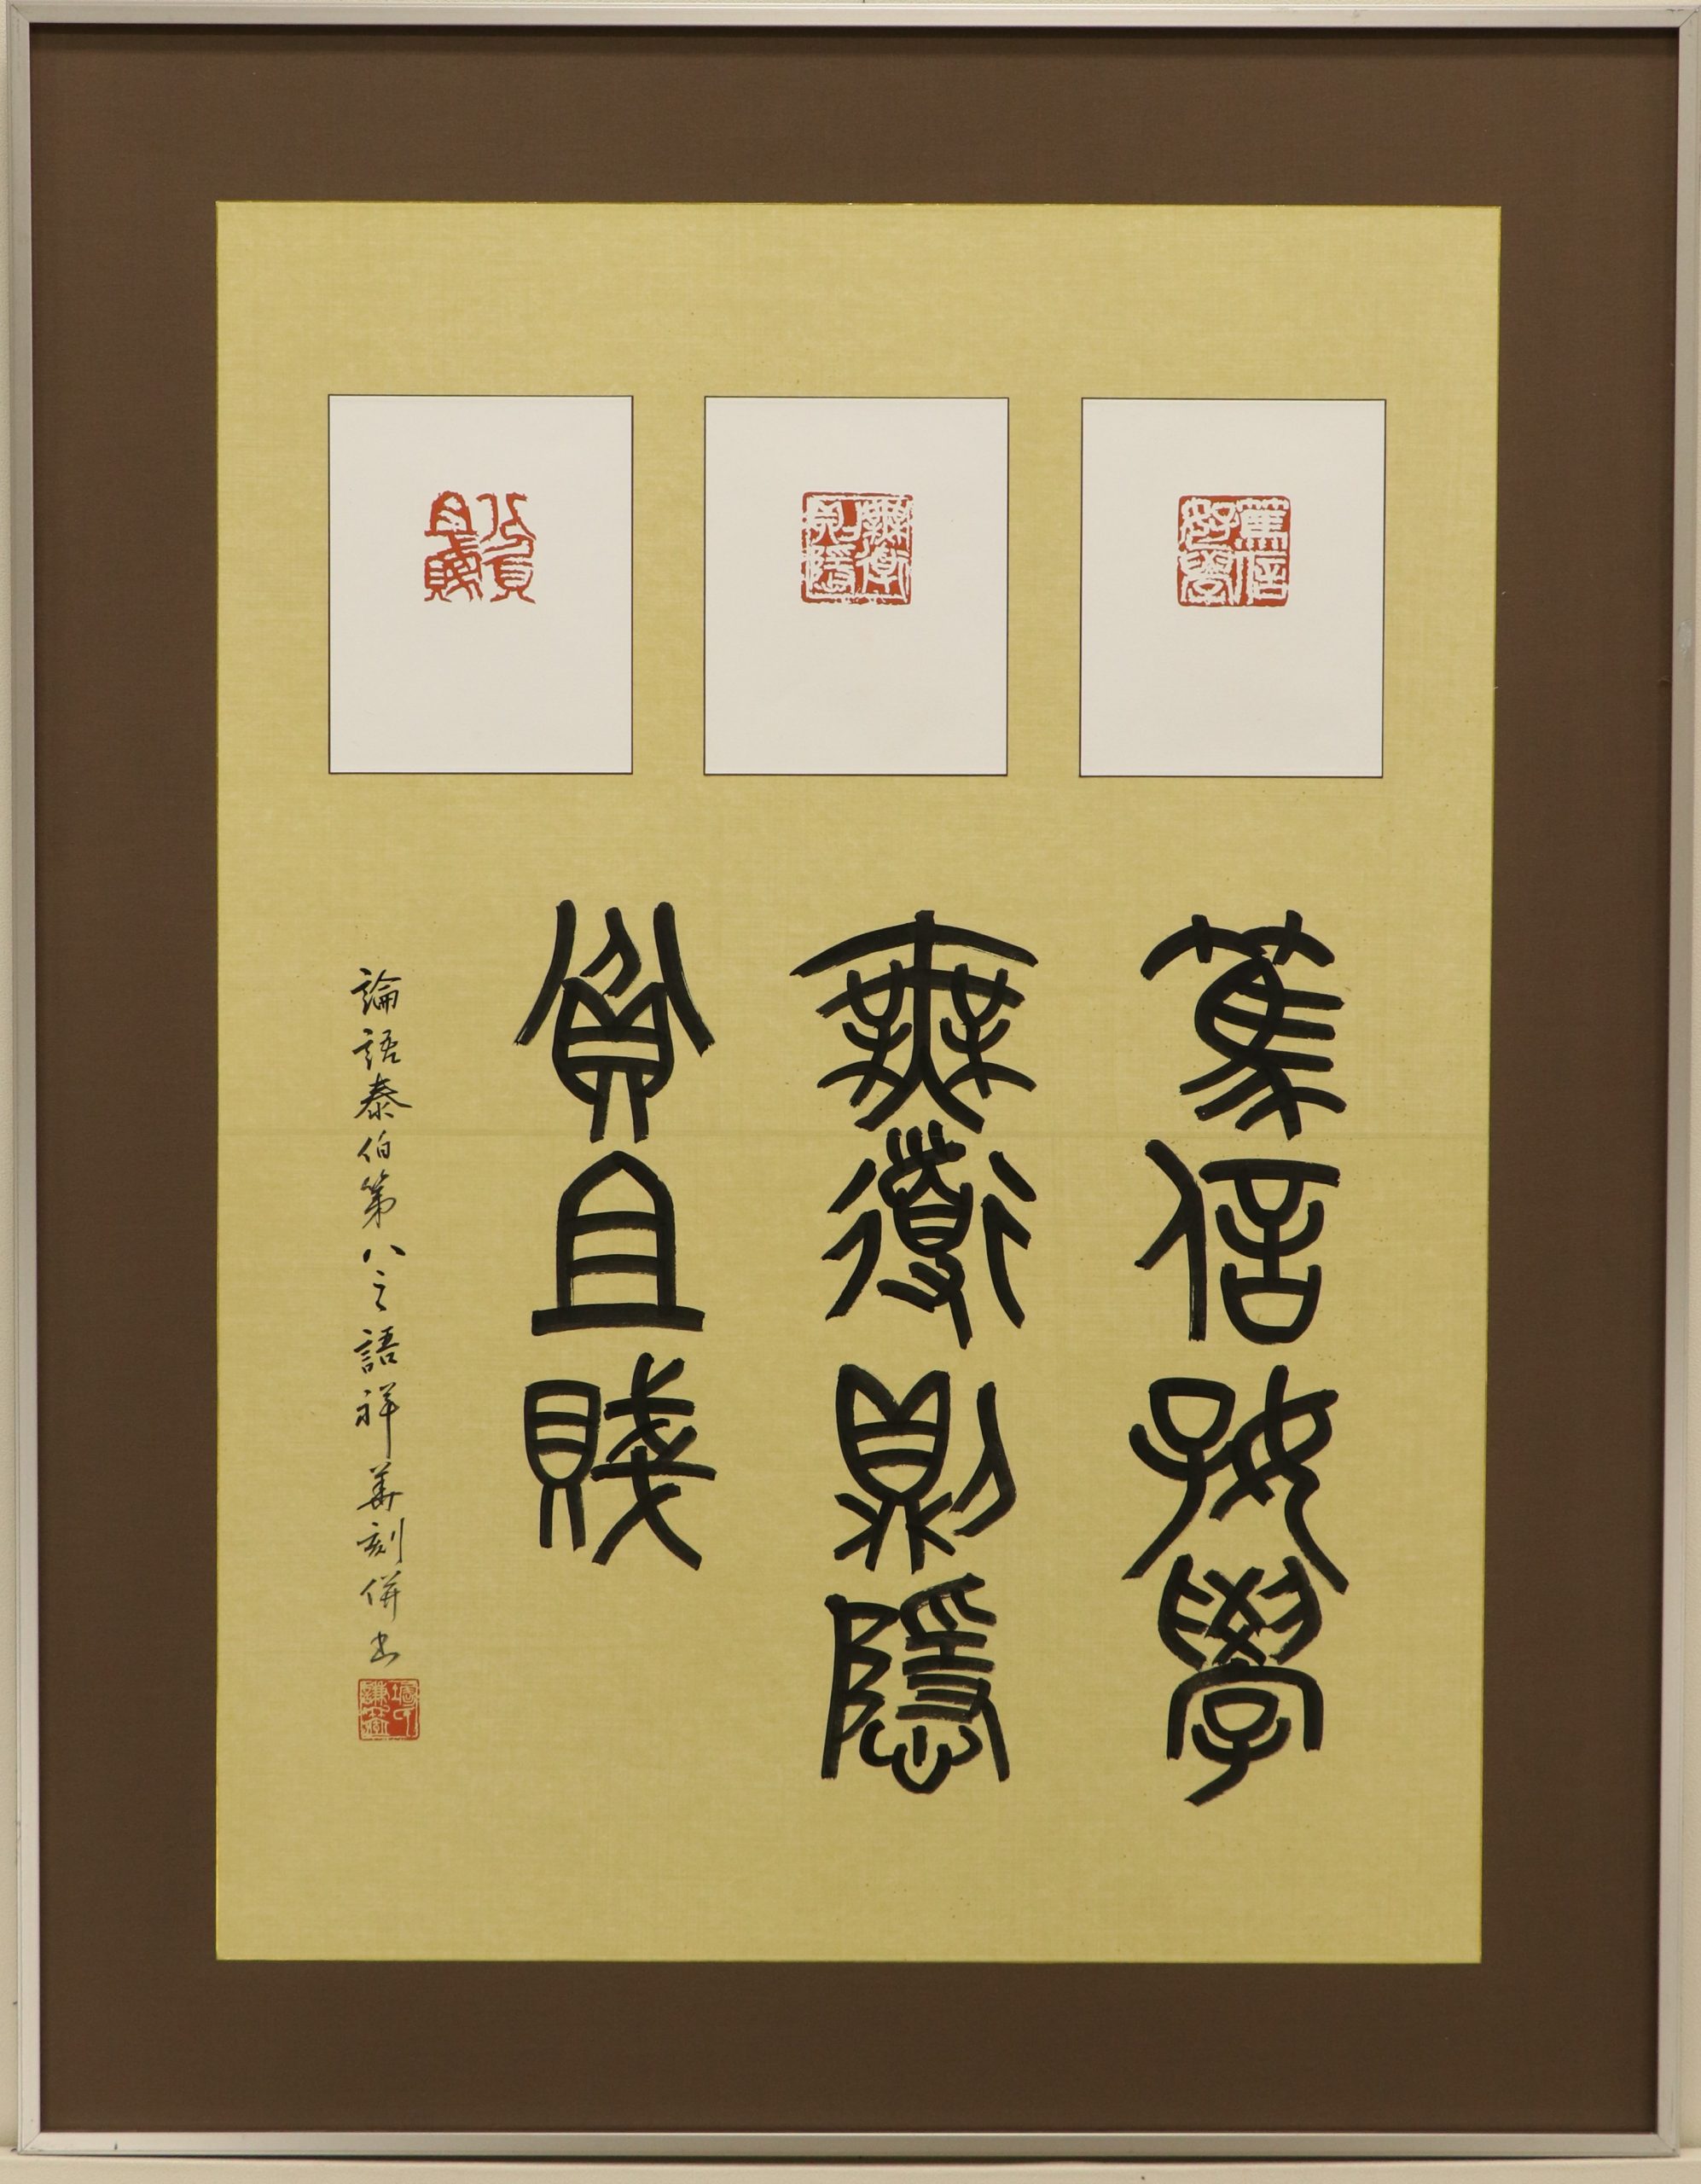 篤信好學
無道則隱
貧且賤
篤信好學
無道則隱
貧且賤
論語泰伯第八之語祥華刻併書